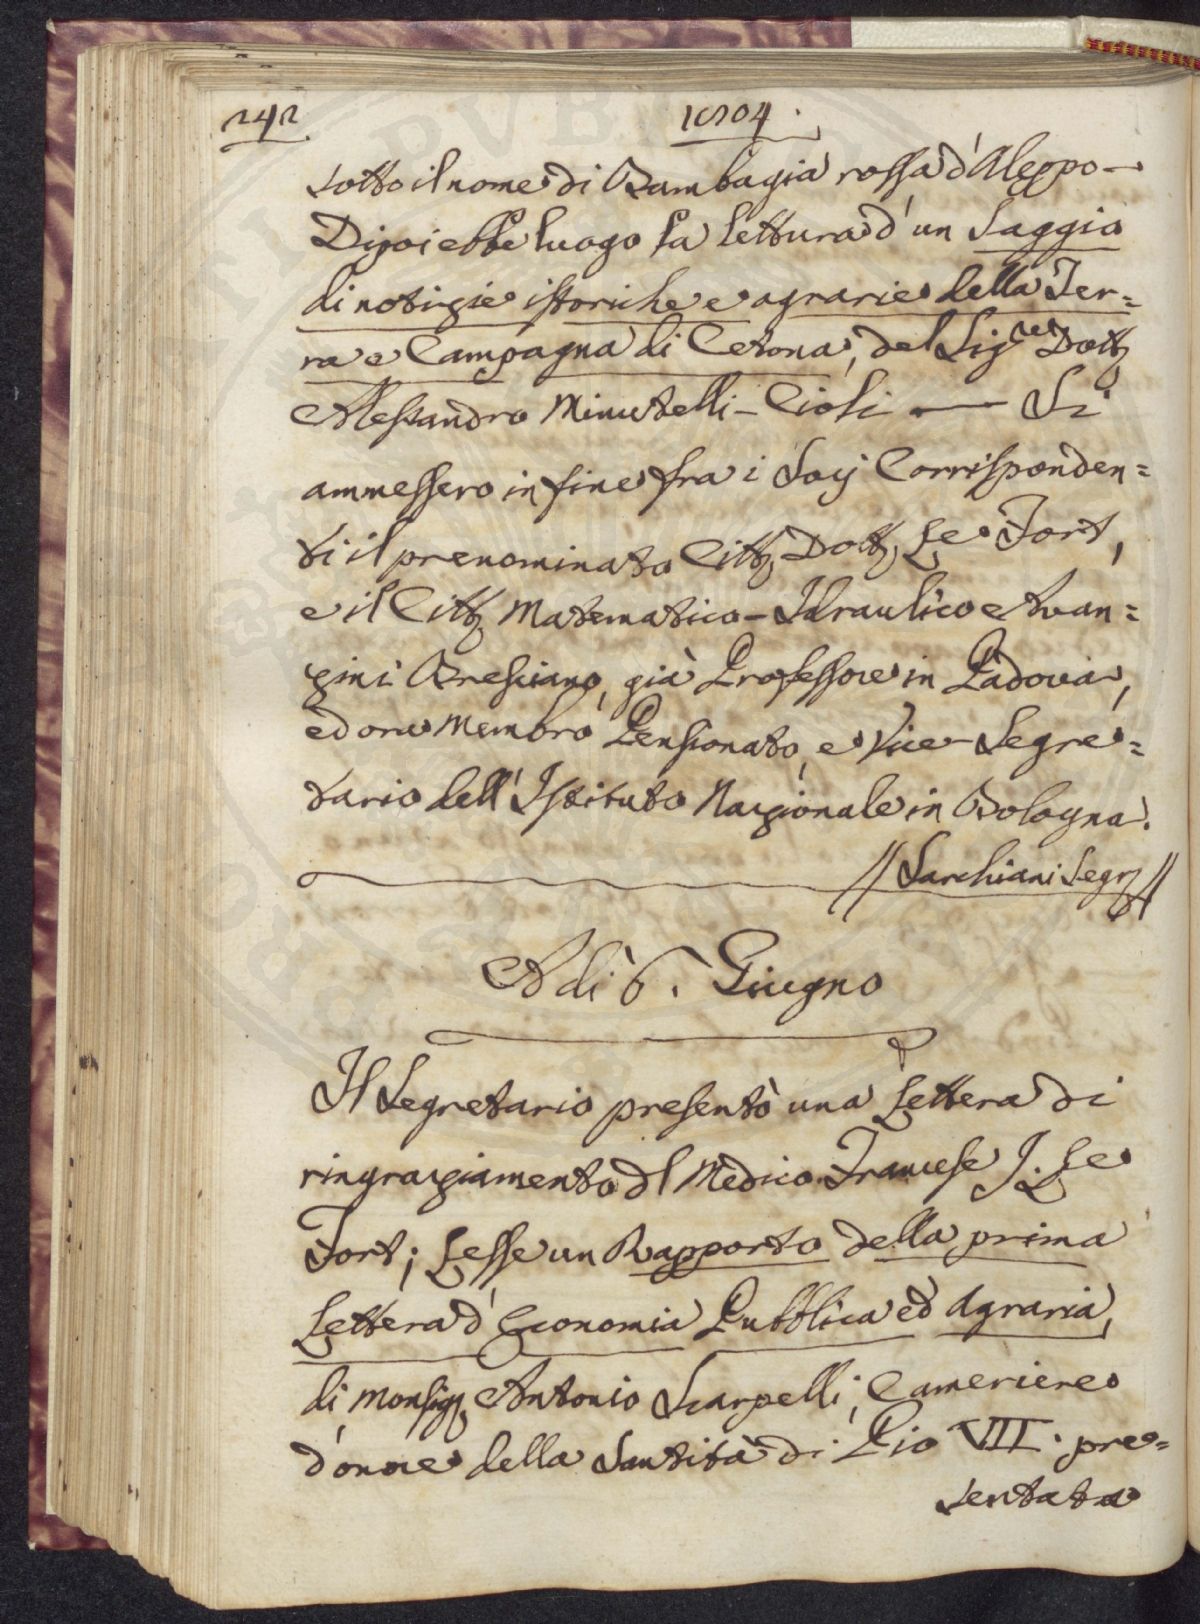 242
1804.
sotto il nome di Bambagia rossa d'Aleppo —
Dipoi ebbe luogo la lettura d'un Saggio
di notizie istoriche e agrarie della Ter=
ra e Campagna di Cetona, del Sig.re Dott.
Alessandro Minutelli-Cioli — Si
ammessero in fine fra i Socj Corrisponden=
ti il prenominato Citt. Dott. Le Fort,
e il Citt. Matematico-Idraulico Avan=
zini Bresciano, già Professore in Padova,
ed ora Membro Pensionato, e Vice-Segre=
tario dell'Istituto Nazionale in Bologna.
// Sarchiani Segr. //
A dì 6. Giugno
Il Segretario presentò una Lettera di
ringraziamento del Medico Francese J. Le
Fort; Lesse un Rapporto della prima
Lettera d'Economia Pubblica ed Agraria,
di Monsig. Antonio Scarpelli, Cameriere
d'onore della Santità di Pio VII. pre=
sentata